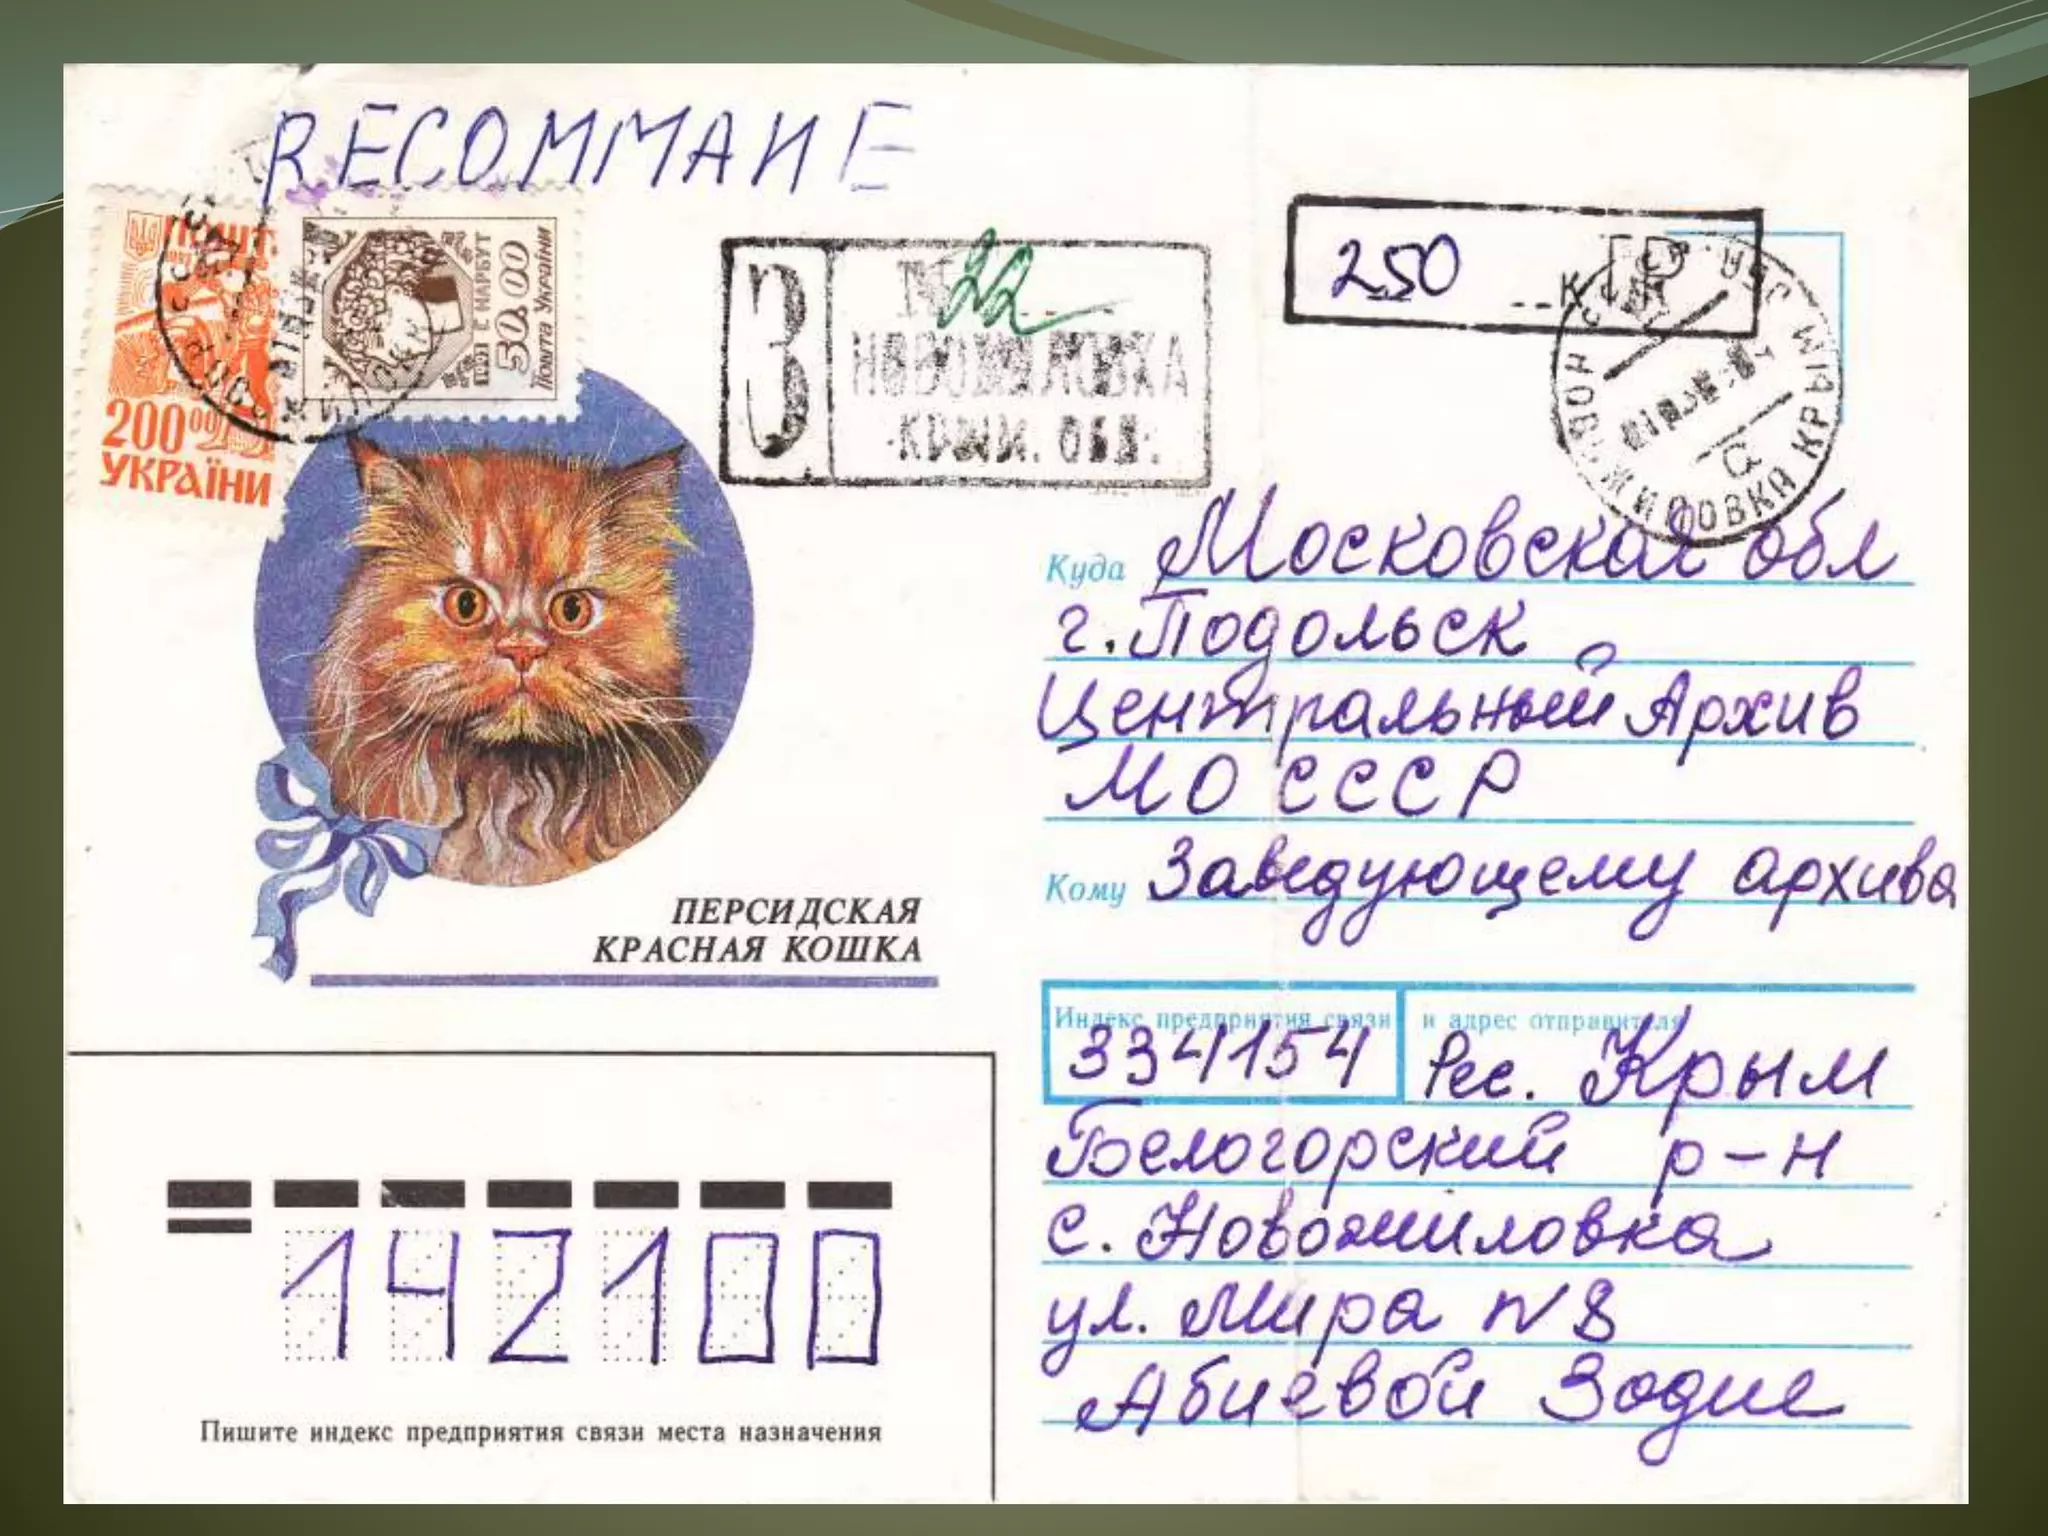 RECOMMANE
ПОШТ
200 00
УКРАЇНИ
Г. НАРБУТ
50.00
Пошта України
З
22
НОВОЖИЛОВКА
КРЫМ. ОБЛ.
250
к
НОВОЖИЛОВКА КРЫМ
Куда Московская обл
г. Подольск
Центральный Архив
МО СССР
Кому Заведующему архива
ПЕРСИДСКАЯ
КРАСНАЯ КОШКА
Индекс предприятия связи и адрес отправителя
334154 Рес. Крым
Белогорский р-н
с. Новожиловка
ул. Мира N 8
Абиевой Зодие
142100
Пишите индекс предприятия связи места назначения